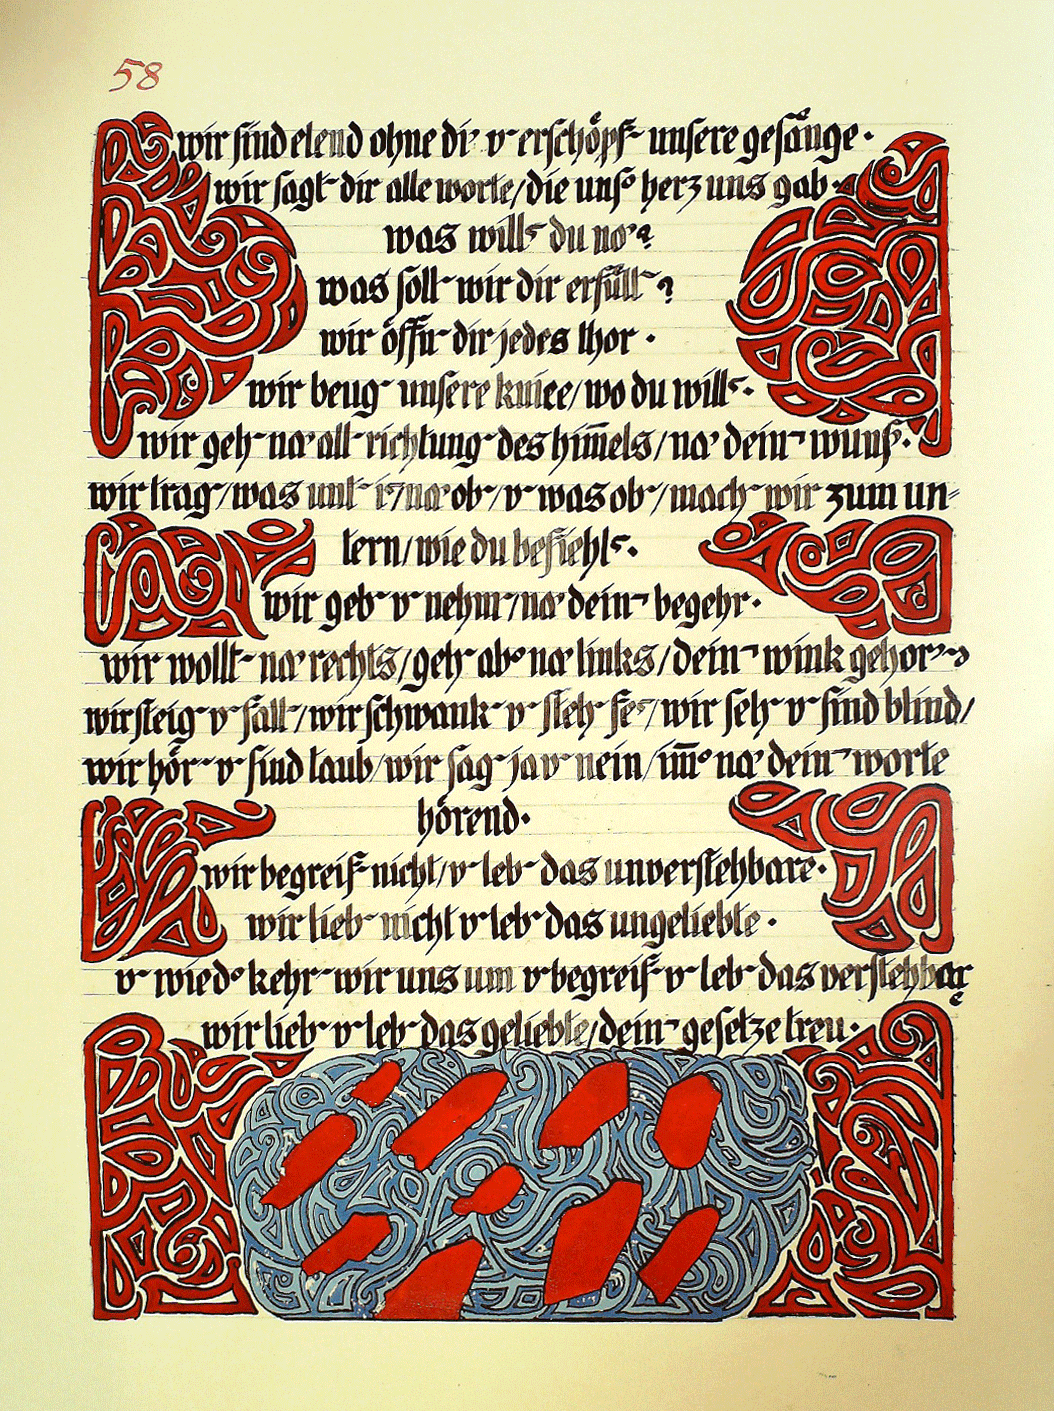 58
wir sind elend ohne di' v- erschöpf- unsere gesänge.
wir sagt- dir alle worte/die uns° herz uns gab.
was will- du no'?
was soll- wir dir erfüll-?
wir öffn- dir jedes thor.
wir beug- unsere kniee/wo du will-.
wir geh- na' all- richtung- des him̄els/na' dein- wuns'.
wir trag-/was unt- ist/na' ob-/v- was ob-/mach- wir zum un=
tern/wie du befiehl-.
wir geb- v- nehm-/na' dein- begehr.
wir wollt- na' rechts/geh- ab° na' links/dein- wink gehor'-d
wir steig- v- fall-/wir schwank- v- steh- fe-/wir seh- v- sind blind/
wir hör- v- sind taub/wir sag- ja v- nein/im̄° na' dein- worte
hörend.
wir begreif- nicht/v- leb- das unverstehbare.
wir lieb- nicht v- leb- das ungeliebte.
v- wied° kehr- wir uns um v- begreif- v- leb- das verstehbare
wir lieb- v- leb- das geliebte/dein- gesetze treu.